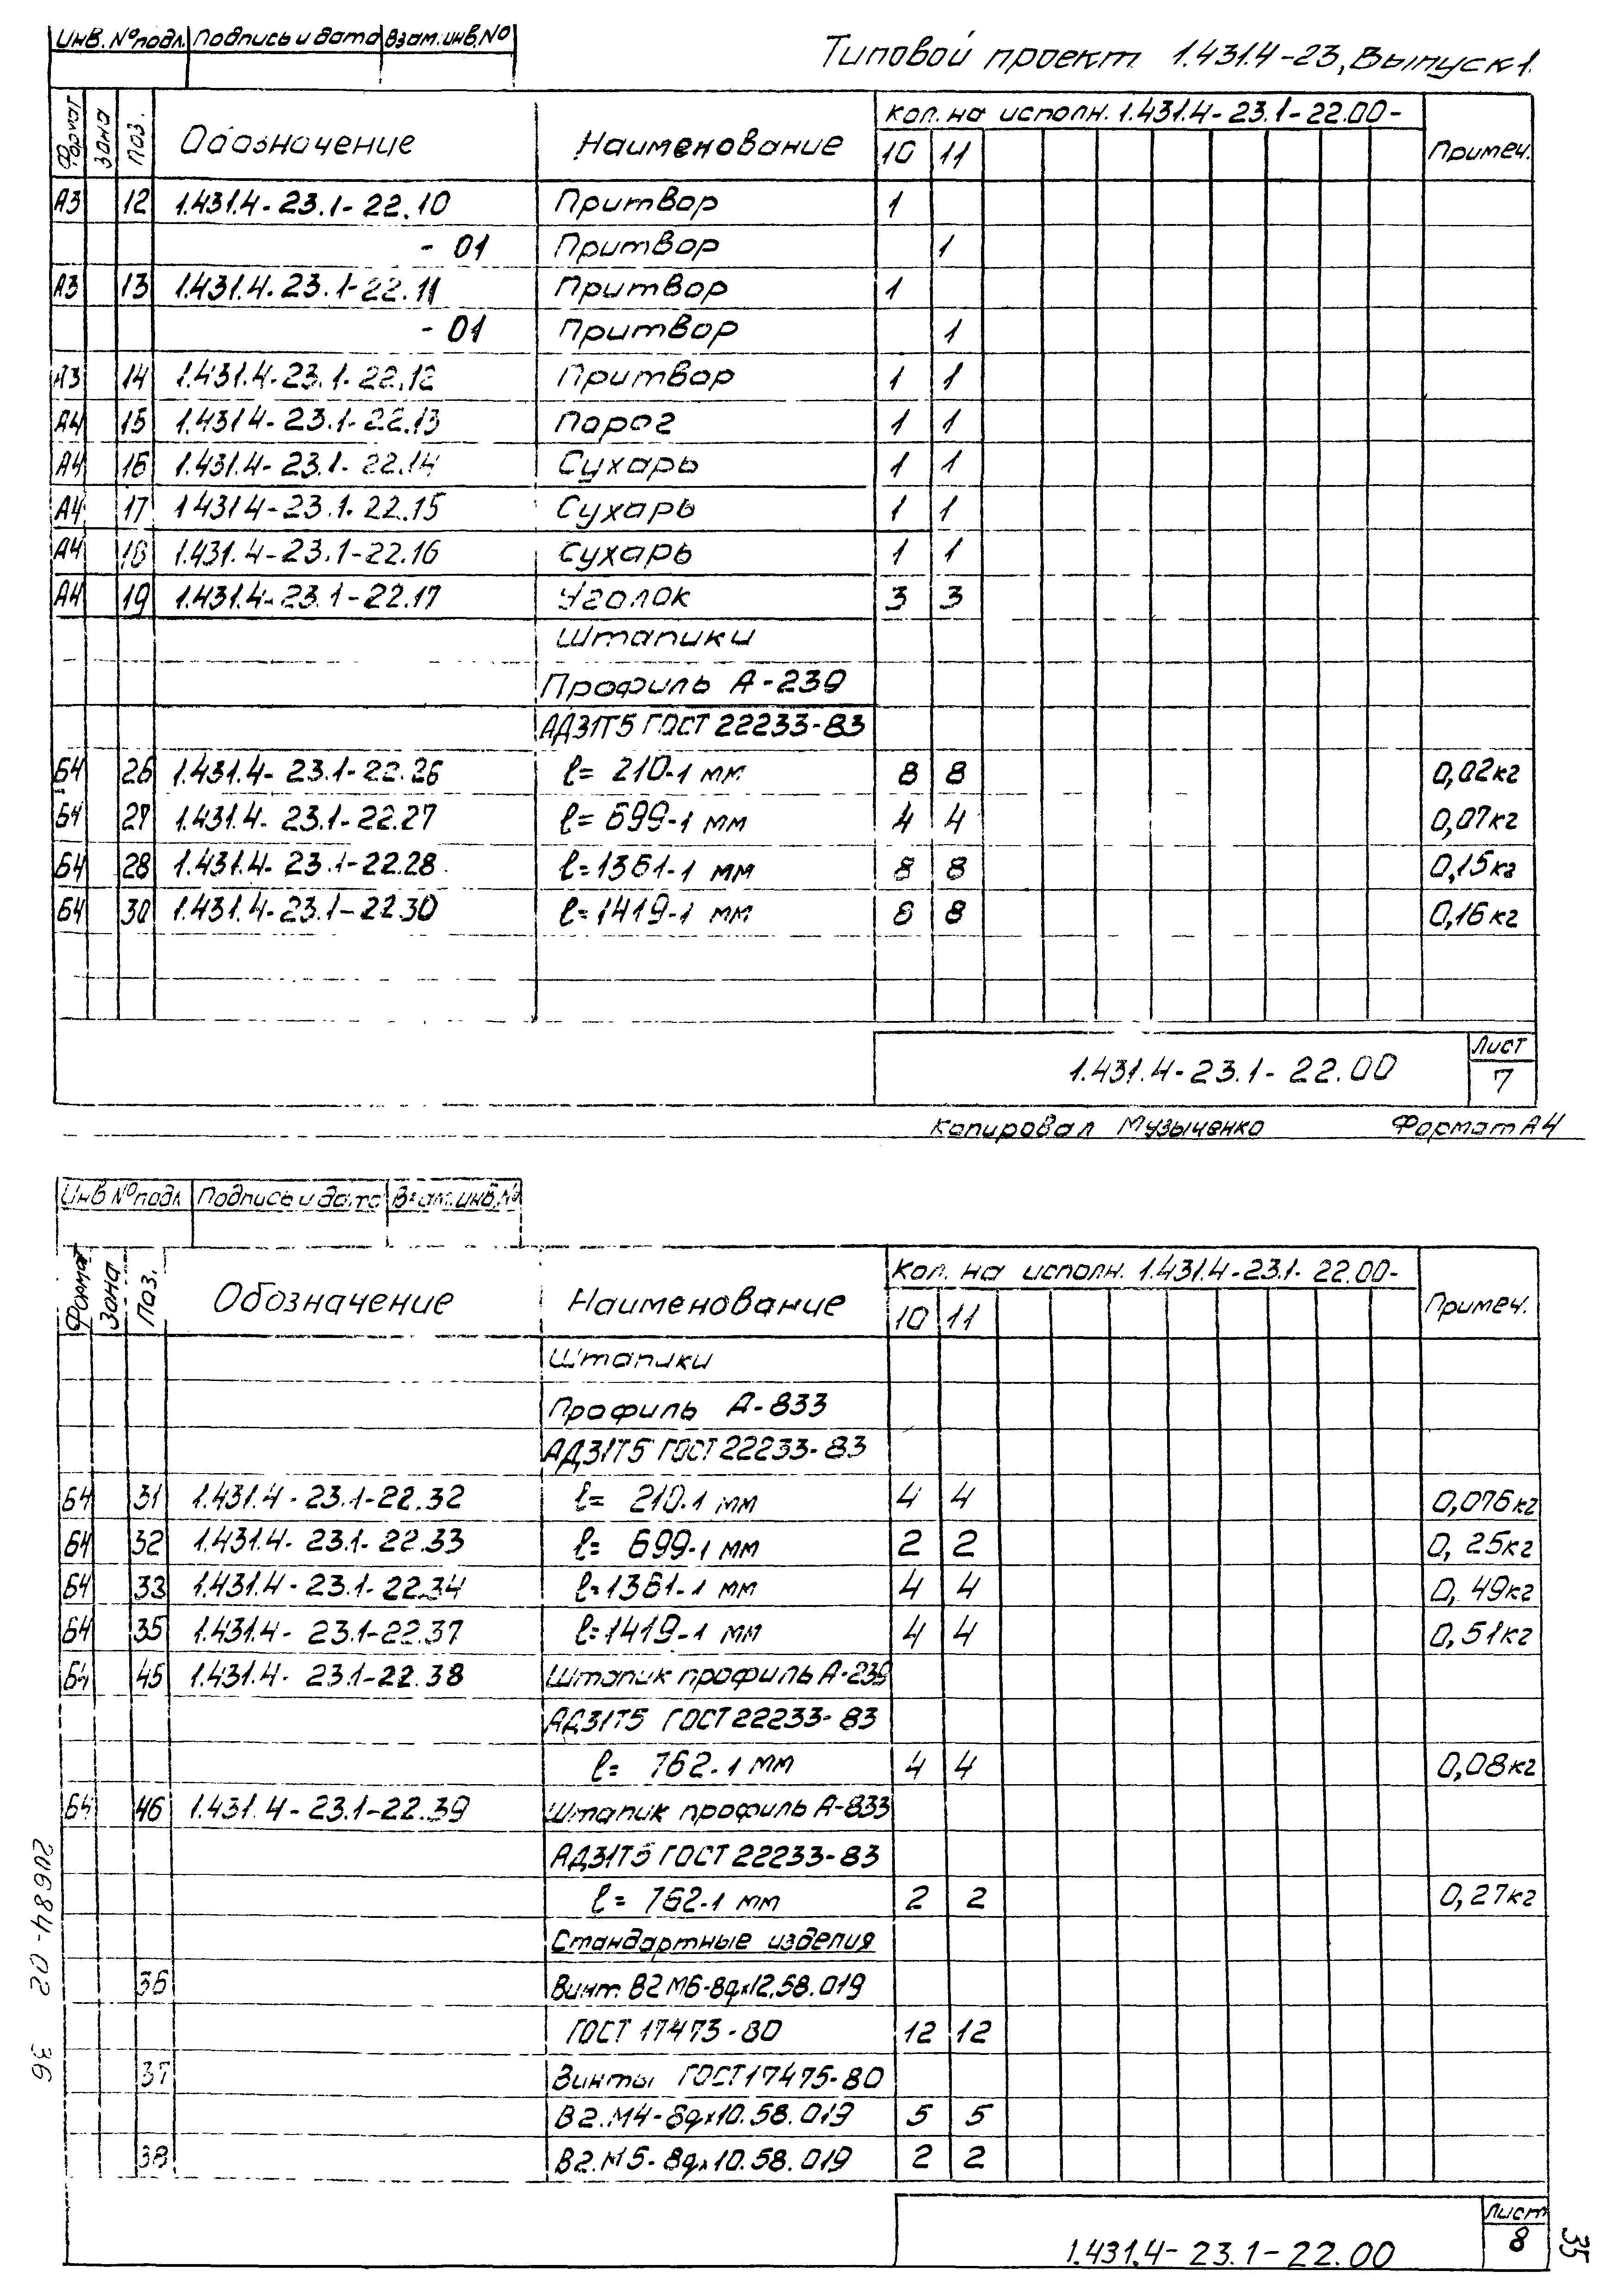 Инв. № подл. Подпись и дата Взам. инв. №
Типовой проект 1.431.4-23, Выпуск 1.
Формат Зона Поз. Обозначение Наименование Кол. на исполн. 1.431.4-23.1-22.00- Примеч.
10 11
А3 12 1.431.4-23.1-22.10 Притвор 1
- 01 Притвор 1
А3 13 1.431.4.23.1-22.11 Притвор 1
- 01 Притвор 1
А3 14 1.431.4-23.1-22.12 Притвор 1 1
А4 15 1.431.4-23.1-22.13 Порог 1 1
А4 16 1.431.4-23.1-22.14 Сухарь 1 1
А4 17 1431 4-23.1-22.15 Сухарь 1 1
А4 18 1.431.4-23.1-22.16 Сухарь 1 1
А4 19 1.431.4-23.1-22.17 Уголок 3 3
Штапики
Профиль А-239
АД31Т5 ГОСТ 22233-83
Б4 26 1.431.4-23.1-22.26 ℓ= 210-1 мм 8 8 0,02кг
Б4 27 1.431.4-23.1-22.27 ℓ= 699-1 мм 4 4 0,07кг
Б4 28 1.431.4-23.1-22.28 ℓ=1361-1 мм 8 8 0,15кг
Б4 30 1.431.4-23.1-22.30 ℓ=1419-1 мм 8 8 0,16кг
1.431.4-23.1-22.00 Лист 7
Копировал Музыченко Формат А4
Инв № подл. Подпись и дата Взам. инв. №
Форма Зона Поз. Обозначение Наименование Кол. на исполн. 1.431.4-23.1-22.00- Примеч.
10 11
Штапики
Профиль А-833
АД31Т5 ГОСТ 22233-83
Б4 31 1.431.4-23.1-22.32 ℓ= 210-1 мм 4 4 0,076кг
Б4 32 1.431.4-23.1-22.33 ℓ= 699-1 мм 2 2 0,25кг
Б4 33 1.431.4-23.1-22.34 ℓ=1361-1 мм 4 4 0,49кг
Б4 35 1.431.4-23.1-22.37 ℓ=1419-1 мм 4 4 0,51кг
Б4 45 1.431.4-23.1-22.38 Штапик профиль А-239
АД31Т5 ГОСТ 22233-83
ℓ= 762-1 мм 4 4 0,08кг
Б4 46 1.431.4-23.1-22.39 Штапик профиль А-833
АД31Т5 ГОСТ 22233-83
ℓ= 762-1 мм 2 2 0,27кг
Стандартные изделия
36 Винт В2М6-8gх12.58.019
ГОСТ 17473-80 12 12
37 Винты ГОСТ 17475-80
В2.М4-8gх10.58.019 5 5
38 В2.М5-8gх10.58.019 2 2
1.431.4-23.1-22.00 Лист 8
20684-02 36
35